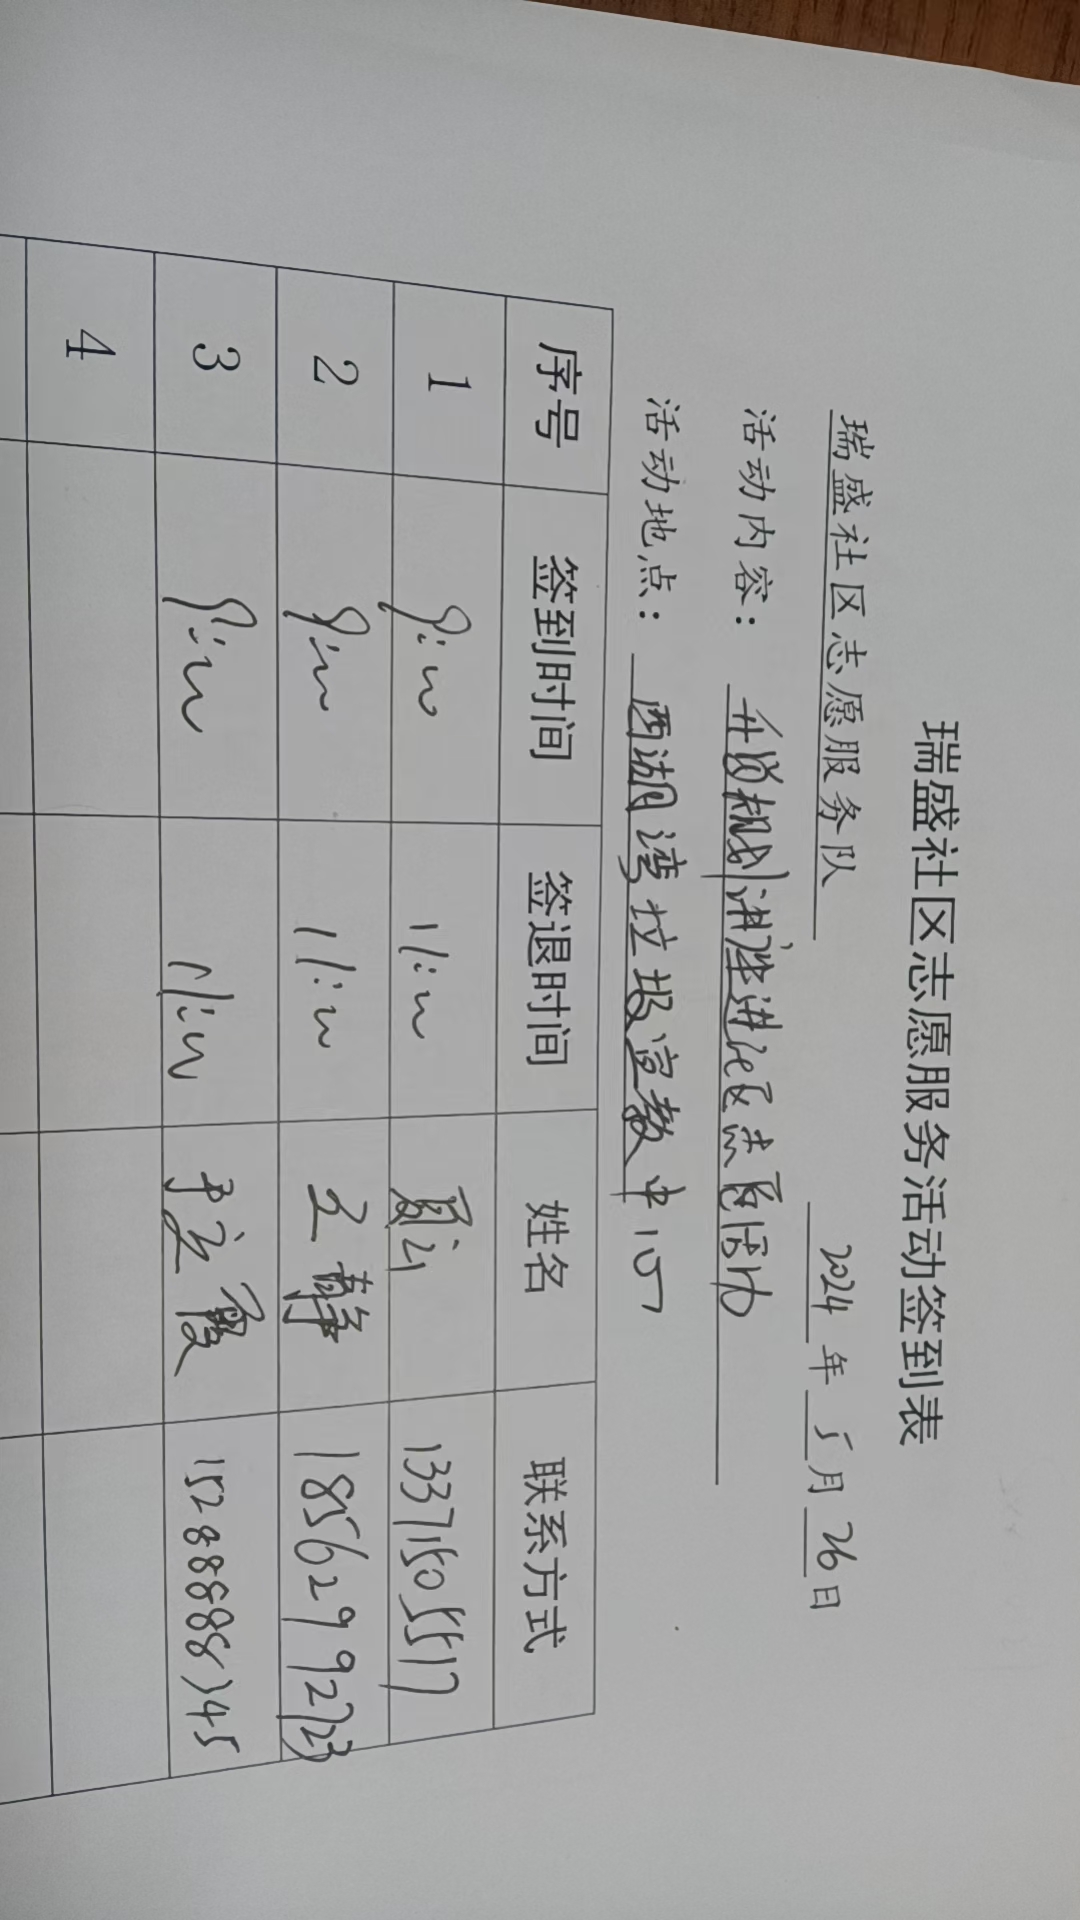 瑞盛社区志愿服务活动签到表
瑞盛社区志愿服务队 2024年5月26日
活动内容：
活动地点：西湖湾垃圾宣教中心
序号 签到时间 签退时间 姓名 联系方式
1 9:00 11:00 13371505517
2 9:00 11:00 王静 18562992723
3 9:00 11:00 15288888345
4